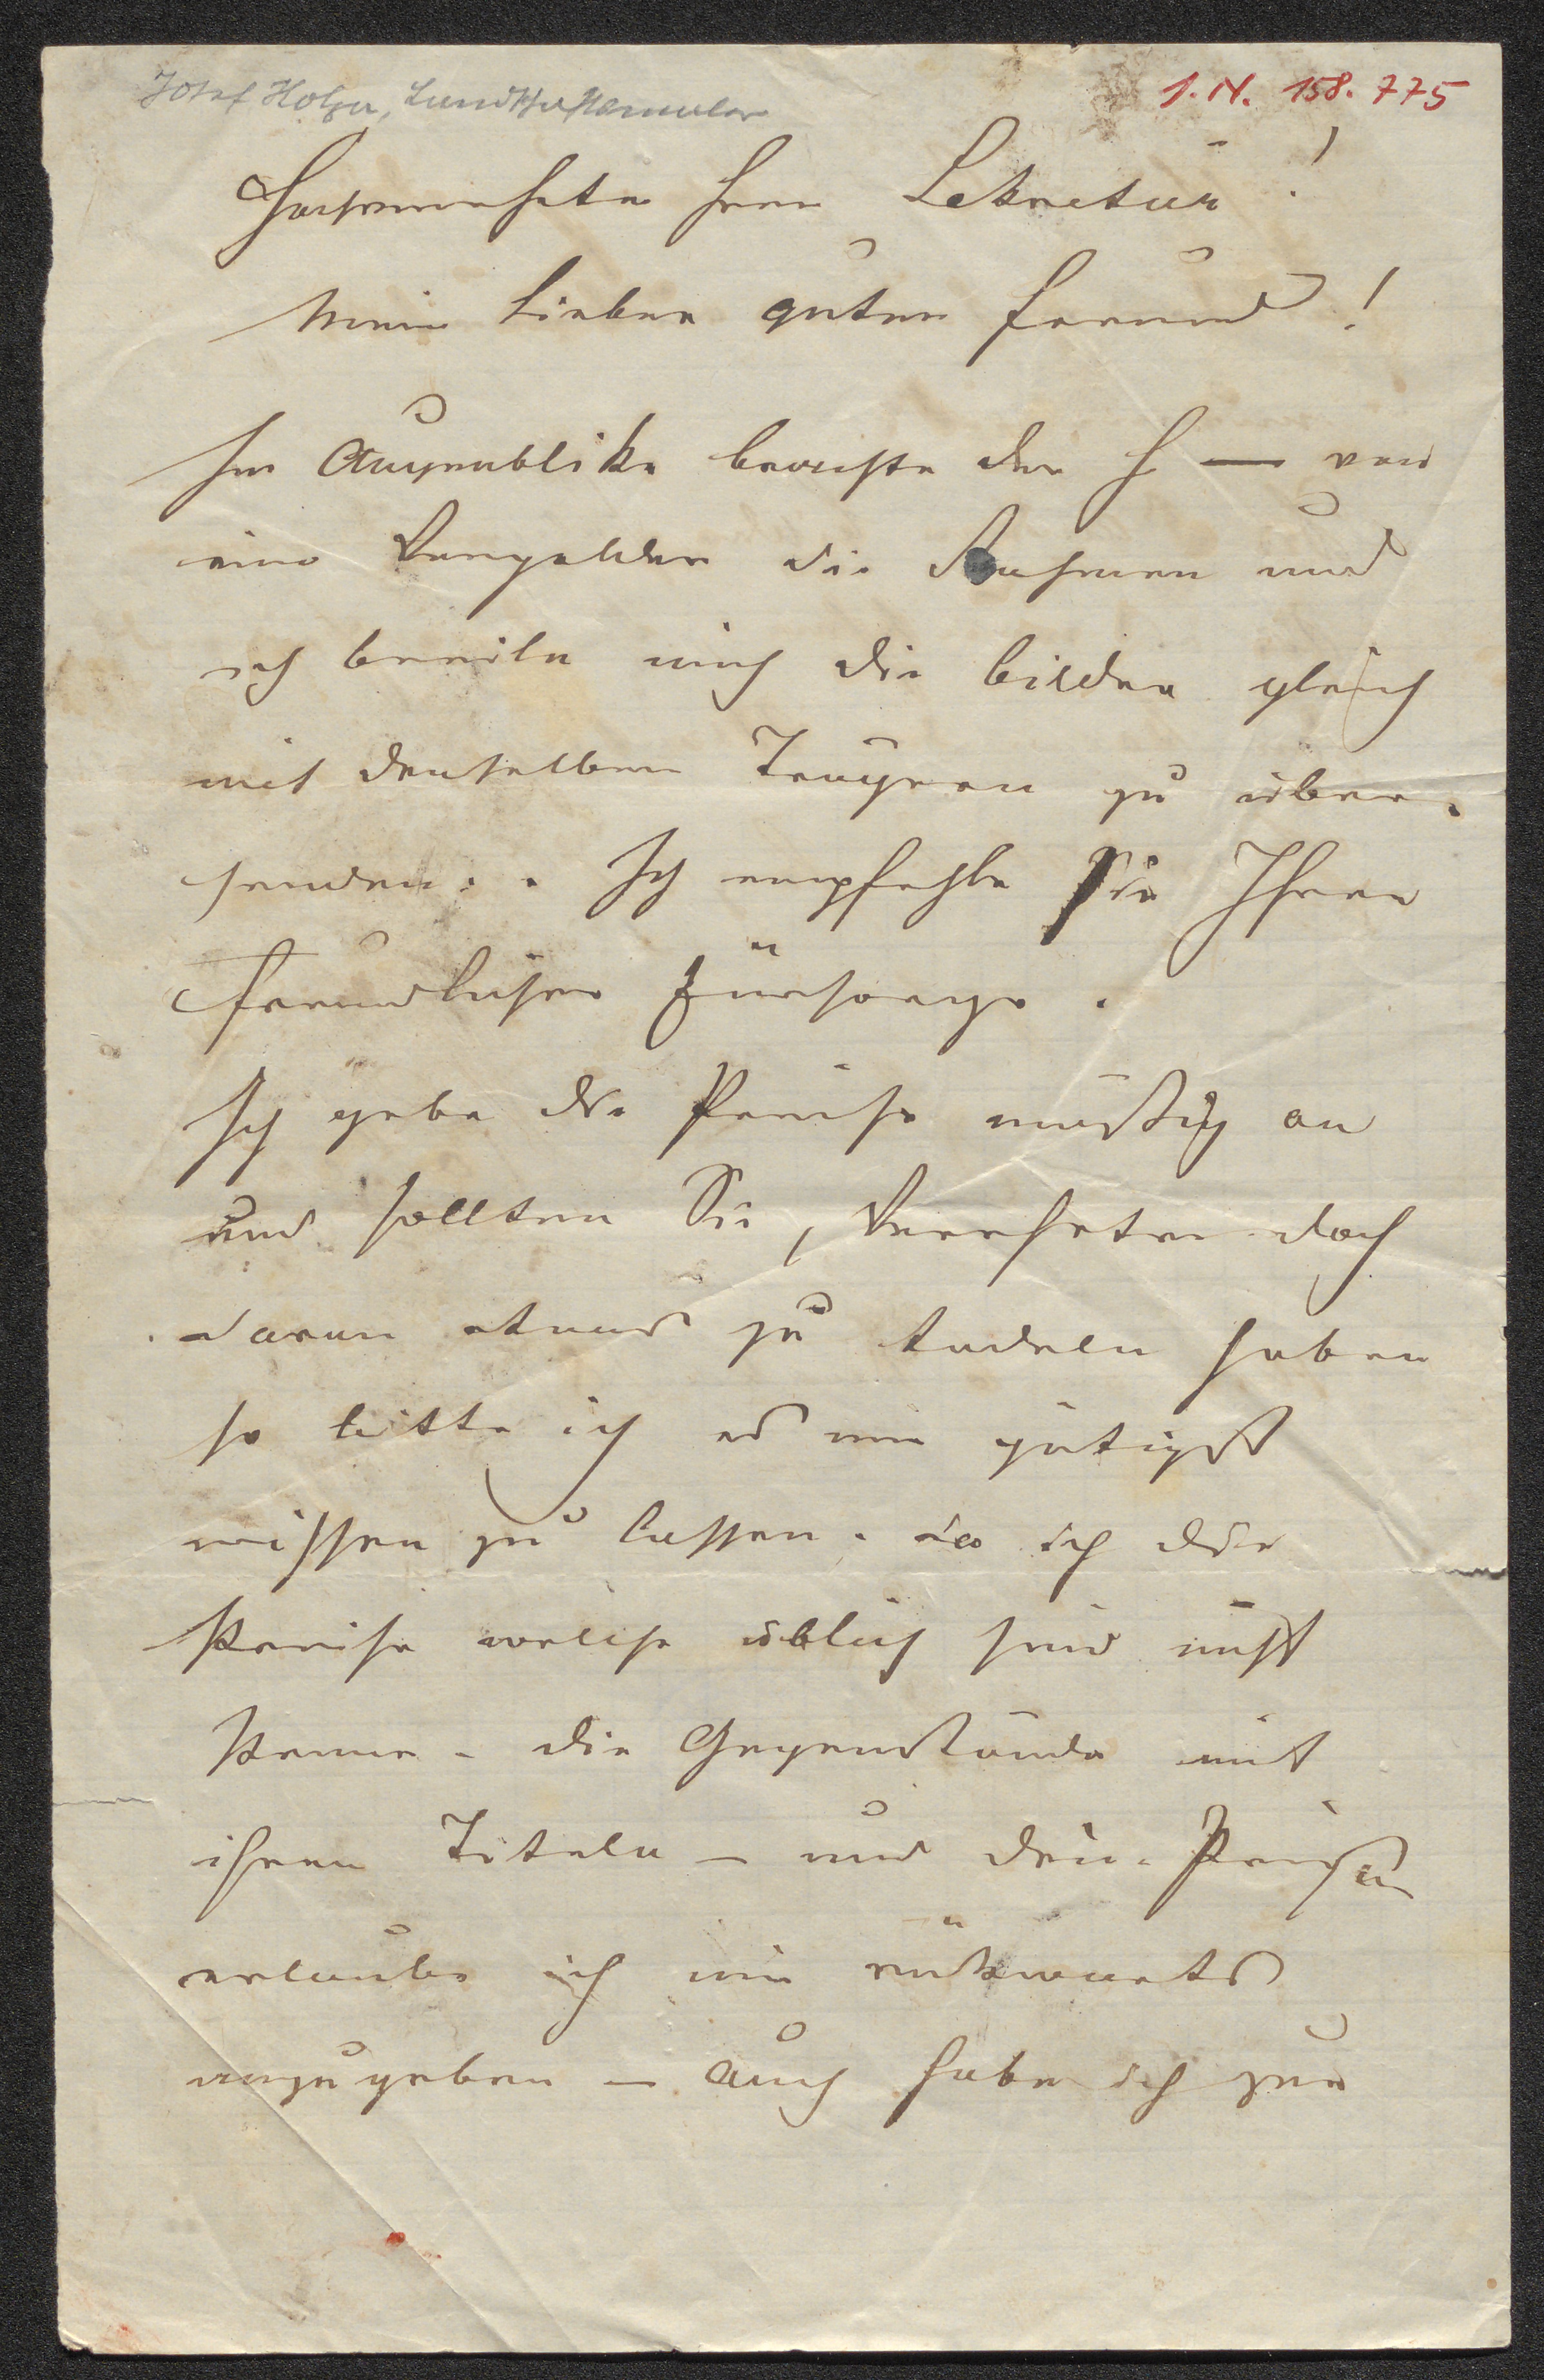 Josef Holzer, Landschaftsmaler
I. N. 158.775
Hochverehrter Herr Sekretär!
Mein lieber guter Freund!
Im Augenblike brachte der H — von
eine Vergolder die Rahmen und
ich beeile mich die bilder gleich
mit denselben Trägern zu über-
senden. Ich empfehle Sie Ihrer
freundlichen Fürsorge.
Ich gebe die Preise mäßig an
und sollten Sie, Verehrter doch
daran etwas zu tadeln haben
so bitte ich es mir gütigst
wissen zu lassen. da ich die
Preise welche üblich sind nicht
kenne – die Gegenstände mit
ihren Titeln – und den Preisen
erlaube ich mir rükwärts
anzugeben – auch habe ich zur